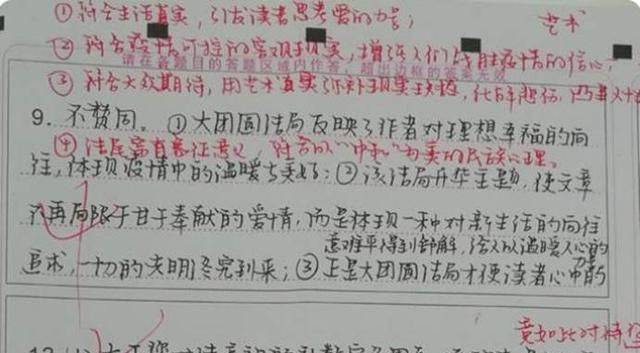 ①符合生活真实，引发读者思考爱的力量； 艺术
②符合疫情可控的客观现实，增强人们战胜疫情的信心；
请在各题目的答题区域内作答，超出边框的答案无效
③符合大众期待，用艺术真实弥补现实缺憾，化解悲伤，
9. 不赞同。①大团圆结局反映了作者对理想幸福的向
④结尾富有象征意义，符合以“中和”为美的民族心理。
往，体现疫情中的温暖与美好；②该结局升华主题，使文章
不再局限于甘于奉献的爱情，而是体现一种对新生活的向往
意难平得到舒解，给人以温暖人心的
追求，一切的光明终究到来；③正是大团圆结局才使读者心中的
竟如此对待